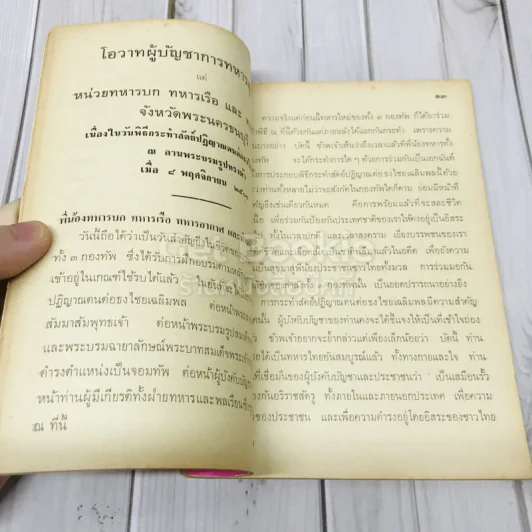 โอวาทผู้บัญชาการทหาร
แด่
หน่วยทหารบก ทหารเรือ และ
จังหวัดพระนครธนบุรี
เนื่องในวันพิธีกระทำสัตย์ปฏิญาณตนต่อ
ณ ลานพระบรมรูปทรงม้า
เมื่อ ๘ พฤศจิกายน
พี่น้องทหารบก ทหารเรือ ทหารอากาศ และ
วันนี้ถือได้ว่าเป็นวันสำคัญยิ่งใน
ทั้ง ๓ กองทัพ ซึ่งได้รับการฝึกอบรมตามหลัก
เข้าอยู่ในเกณฑ์ใช้รบได้แล้ว
ปฏิญาณตนต่อธงไชยเฉลิมพล ต่อหน้าพระ
สัมมาสัมพุทธเจ้า ต่อหน้าพระบรมรูปสม
และพระบรมฉายาลักษณ์พระบาทสมเด็จพระเจ้า
ดำรงตำแหน่งเป็นจอมทัพ ต่อหน้าผู้บังคับบัญชา
หน้าท่านผู้มีเกียรติทั้งฝ่ายทหารและพลเรือนซึ่ง
ณ ที่นี้
๑๓
ความจริงแต่ก่อนนี้ทหารใหม่ของทั้ง ๓ กองทัพ ก็ได้มาร่วม
พิธี ณ ที่นี้ด้วยกันแต่ภายหลังได้แยกกันกระทำ เพราะความ
บางอย่าง บัดนี้ ข้าพเจ้าเห็นว่าถึงเวลาแล้วที่พี่น้องทหารทั้ง
จะได้กระทำการใด ๆ ด้วยการร่วมกันเป็นเอกฉันท์
การประกอบพิธีกระทำสัตย์ปฏิญาณตนต่อธงไชยเฉลิมพล
ท่านทั้งหลายไม่ว่าจะสังกัดในกองทัพใดก็ตาม ย่อมมีหน้าที่
คัญยิ่งเช่นเดียวกันหมด คือการพร้อมแล้วที่จะสละชีวิต
เพื่อร่วมกันป้องกันประเทศชาติของเราให้คงอยู่เป็นอิสระ
ทั้งในเวลาปกติ และยามสงคราม เยี่ยงบรรพชนของเรา
แล้วในอดีต เพื่อยังความ
เป็นสุขมาสู่พี่น้องประชาชาวไทยทั้งมวล การร่วมมือกัน
เป็นยอดปรารถนาอย่างยิ่ง
การกระทำสัตย์ปฏิญาณตนต่อธงไชยเฉลิมพลมีความสำคัญ
นั้น ผู้บังคับบัญชาของท่านคงจะได้ชี้แจงให้เป็นที่เข้าใจถ่อง
ข้าพเจ้าอยากจะย้ำกล่าวแต่เพียงเล็กน้อยว่า บัดนี้ ท่าน
เป็นทหารไทยอันสมบูรณ์แล้ว ทั้งทางกายและใจ ท่าน
ที่เชื่อมั่นของผู้บังคับบัญชาและประชาชนว่า เป็นเสมือนรั้ว
องกันอริราชศัตรู ทั้งภายในและภายนอกประเทศ เพื่อความ
ของประชาชน และเพื่อความดำรงอยู่โดยอิสระของชาวไทย